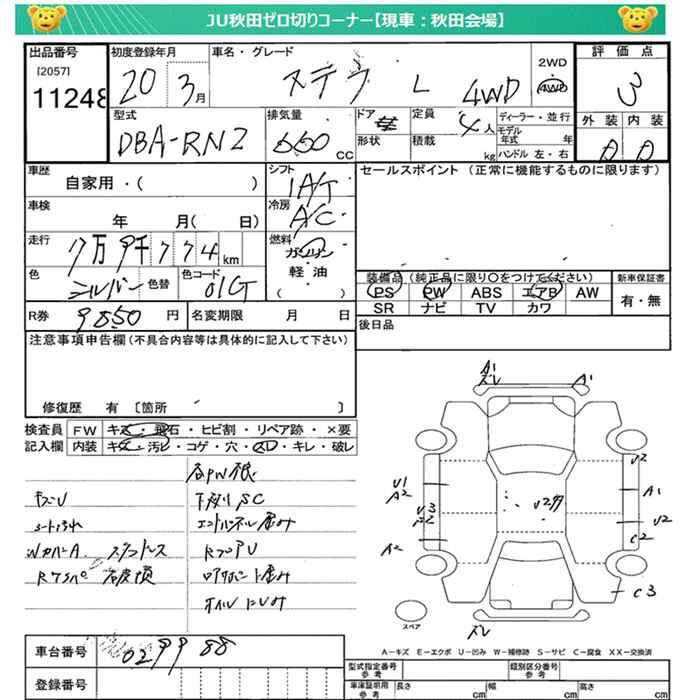 JU秋田ゼロ切りコーナー【現車：秋田会場】
出品番号
[2057]
11248
初度登録年月
20 3月
車名・グレード
ステラ L 4WD
2WD
4WD
評価点
3
型式
DBA-RN2
排気量
660 CC
ドア
形状
定員
4人
積載
kg
ディーラー・並行
モデル年式 年
ハンドル 左・右
外装 内装
D D
車歴
自家用・( )
シフト
IA/T
セールスポイント (正常に機能するものに限ります)
車検
年 月( 日)
冷房
A/C
走行
7万9千774km
燃料
ガソリン
軽油
( )
色
シルバー
色替
色コード
01G
装備品 (純正品に限り○をつけてください)
PS PW ABS エアB AW
SR ナビ TV カワ
新車保証書
有・無
R券 9850円
名変期限 月 日
後日品
注意事項申告欄(不具合内容等は具体的に記入して下さい)
修復歴 有 [箇所 ]
検査員記入欄
FW キズ・飛石・ヒビ割・リペア跡・×要
内装 キズ・汚レ・コゲ・穴・スレ・キレ・破レ
各PW様
キズU
下廻りSC
シート汚れ
WカバーA スタッドレス
RフロアU
オイルにじみ
A1
ズレ
A1
U1
A2
U3
A2
U2
A1
U2
C2
C3
A2
ズレ
スペア
A－キズ E－エクボ U－凹み W－補修跡 S－サビ C－腐食 XX－交換済
車台番号 029988
登録番号
型式指定番号 参考
類別区分番号 参考
車庫証明用 参考
長さ cm
幅 cm
高さ cm